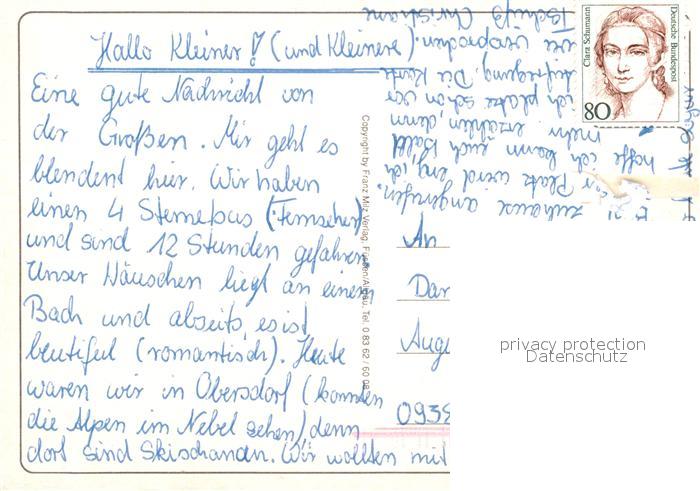 Hallo Kleiner! (und Kleinere).
Eine gute Nachricht von
der Großen. Mir geht es
blendent hier. Wir haben
einen 4 Sternebus (Fernseher)
und sind 12 Stunden gefahren.
Unser Häuschen liegt an einem
Bach und abseits, es ist
beutiful (romantisch). Heute
waren wir in Obersdorf (konnten
die Alpen im Nebel sehen), denn
dort sind Skischanzen. Wir wollten mit
zuhause angerufen.
Platz wird eng, ich
hoffe ich kann euch bald
mehr erzählen, denn
ich platze schon vor
Aufregung. Die Karte
wie versprochen.
Tschüß Christiane
Copyright by Franz Milz Verlag, Füssen/Allgäu, Tel. 0 83 62 / 60 08
Clara Schumann
Deutsche Bundespost
80
An
privacy protection
Datenschutz